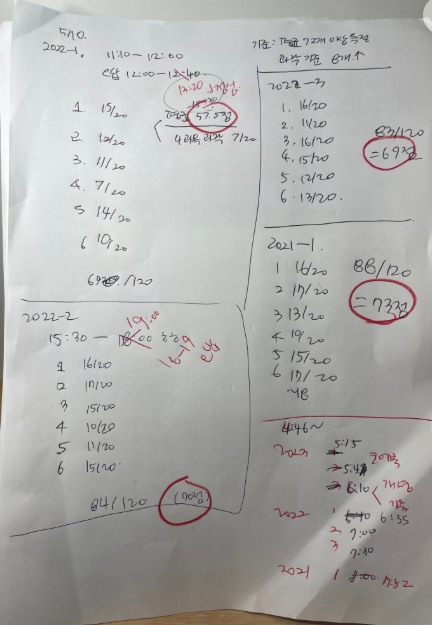 5/10.
2022-1. 11:10 - 12:00
오답 12:00 - 12:40
13:20
1. 15/20
57.5점
4과목 과락 7/20
2. 12/20
3. 11/20
4. 7/20
5 14/20
6 10/20
69 /120
2022-2
15:30 - 18:00
19:00
18-19
1 16/20
2 17/20
3 15/20
4 10/20
5 11/20
6 15/20
84/120 (70점)
기준: 평균 72개 이상 득점
과락 기준 8개↑
2022-3
1. 16/20
2. 11/20
3. 16/20
4. 15/20
5. 12/20
6. 13/20.
83/120
=69점
2021-1.
1 16/20
2 17/20
3 13/20
4 10/20
5 15/20
6 17/20
88/120
=73점
4:46~
2023 1 5:15
2 5:4
3 6:10
2022 1 6:10 6:35
2 7:00
3 7:30
2021 1 8:00 7:52